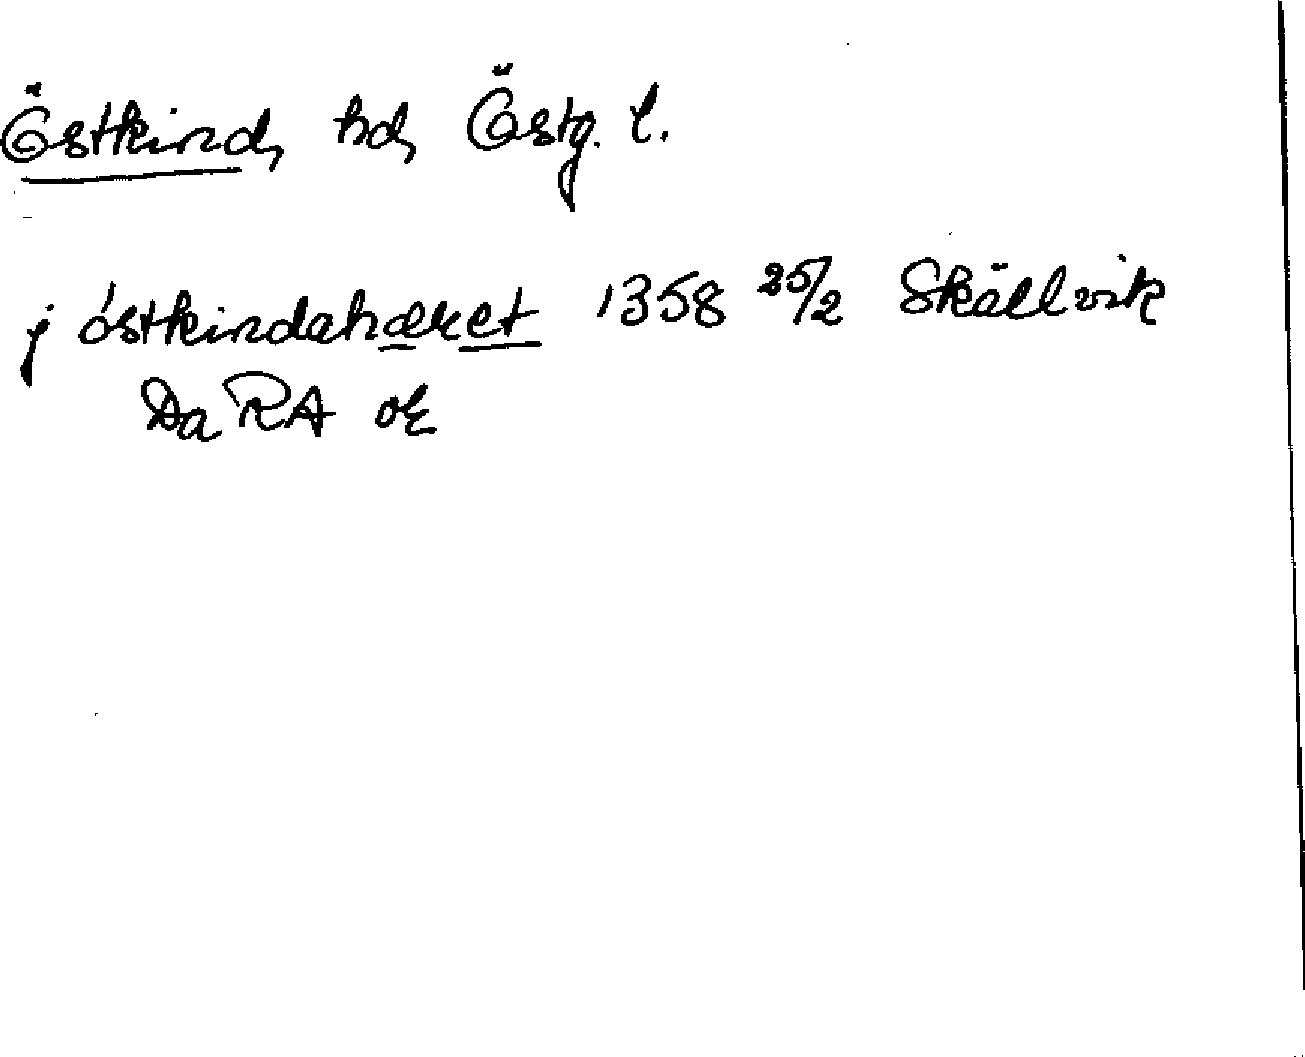 Östkind, hd, Östg. l.
j óstkindahæret 1358 25/2 Skällvik
Da RA or